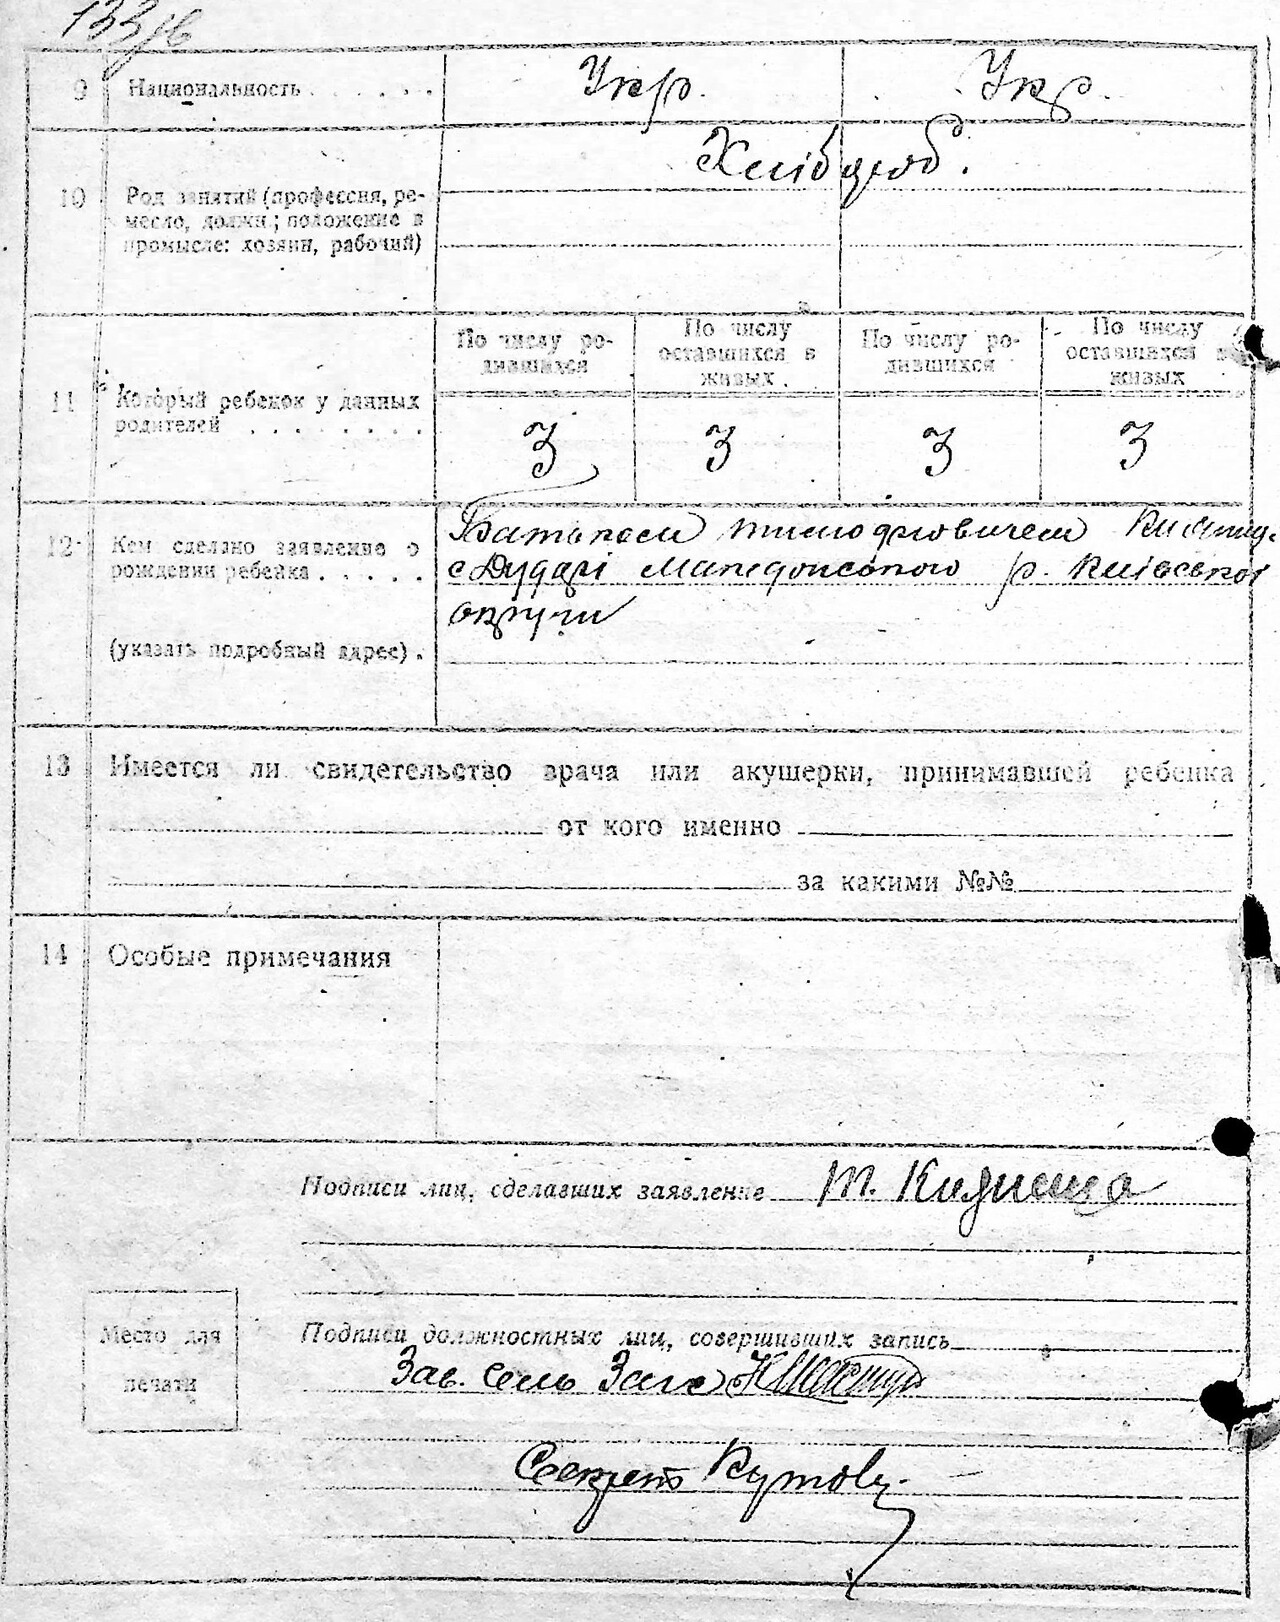 9 Национальность . . . . . . Укр. Укр.
10 Род занятий (профессия, ре-
месло, должн.; положение в
промысле: хозяин, рабочий)
Хлібороб.
11 Который ребенок у данных
родителей . . . . . . . .
По числу ро-
дившихся
По числу
оставшихся в
живых.
По числу ро-
дившихся
По числу
оставшихся в
живых
3 3 3 3
12 Кем сделано заявление о
рождении ребенка . . . . .
(указать подробный адрес) .
Батьком
с Дударі Македонського р. Київської
округи
13 Имеется ли свидетельство врача или акушерки, принимавшей ребенка
от кого именно
за какими №№
14 Особые примечания
Подписи лиц, сделавших заявление Т.
Место для
печати
Подписи должностных лиц, совершивших запись
Зав. Сель Загс
Секрет